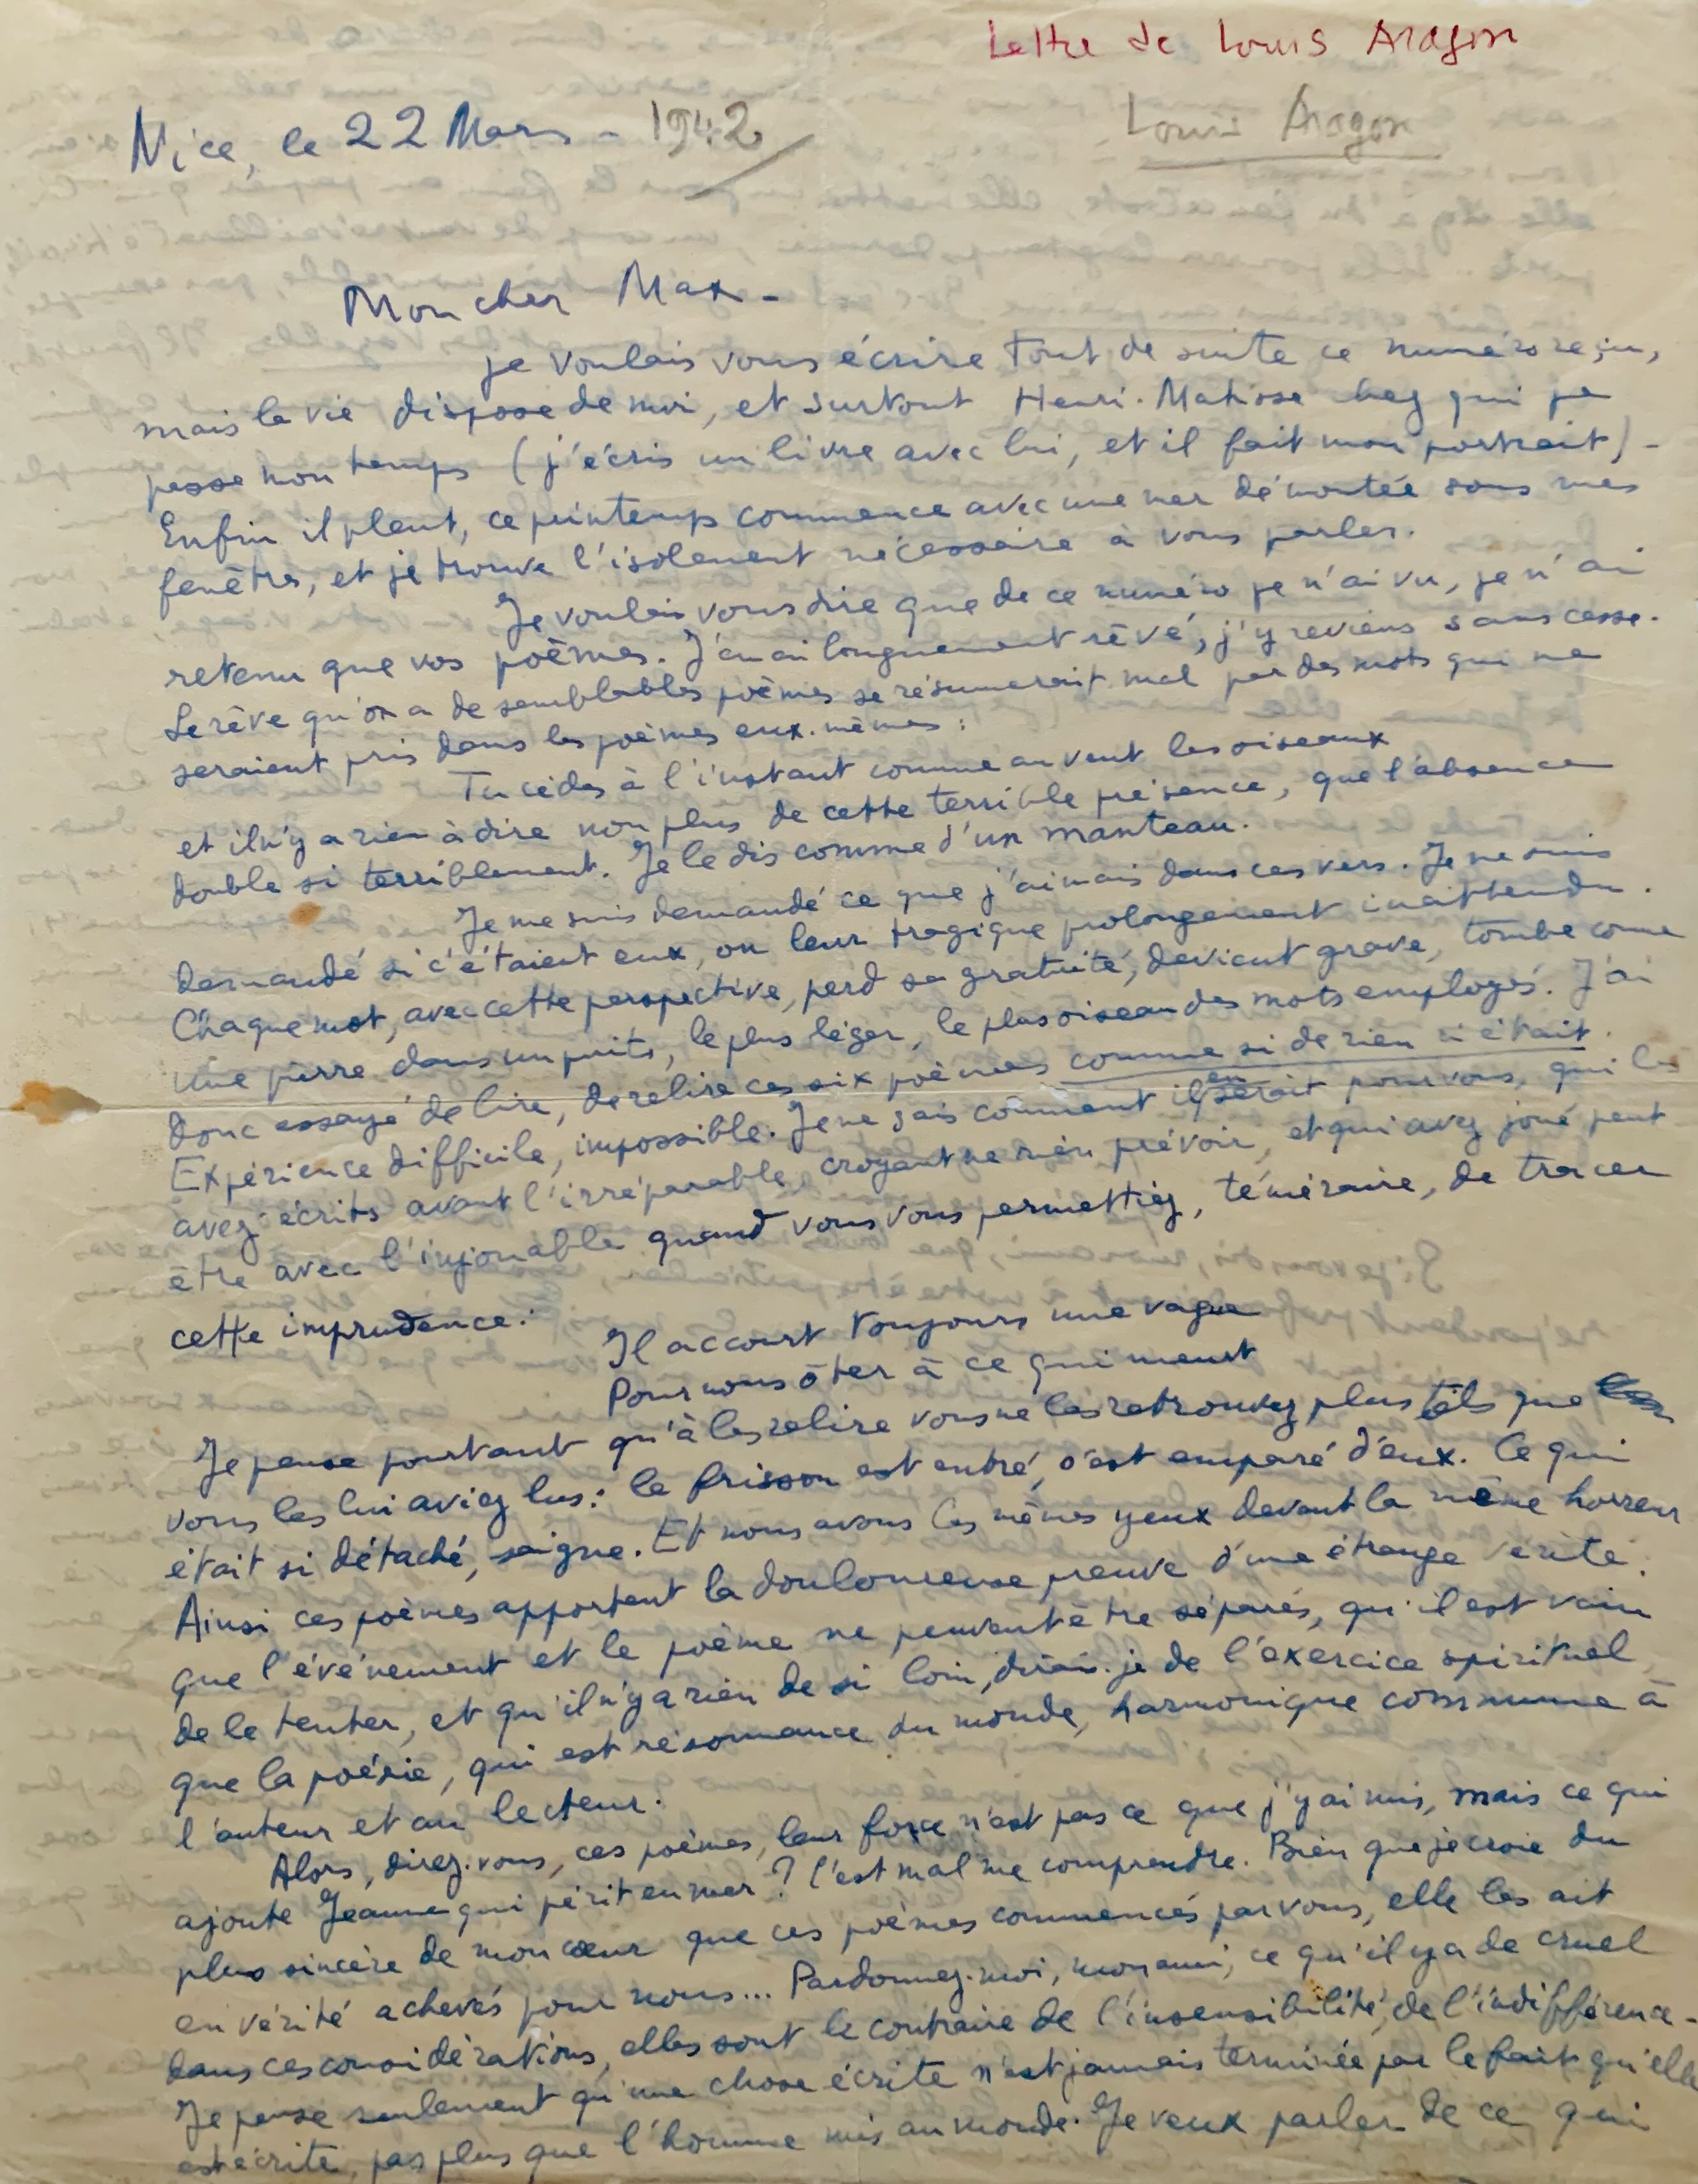 Lettre de Louis Aragon
Louis Aragon
Nice, le 22 Mars - 1942
Mon cher Max -
je voulais vous écrire tout de suite ce numéro reçu,
mais la vie dispose de moi, et surtout Henri-Matisse chez qui je
passe mon temps (j'écris un livre avec lui, et il fait mon portrait) -
Enfin il pleut, ce printemps commence avec une mer démontée sous mes
fenêtres, et je trouve l'isolement nécessaire à vous parler.
Je voulais vous dire que de ce numéro je n'ai vu, je n'ai
retenu que vos poèmes. J'en ai longuement rêvé, j'y reviens sans cesse.
Le rêve qu'on a de semblables poèmes se résumerait mal par des mots qui ne
seraient pris dans les poèmes eux-mêmes :
Tu cèdes à l'instant comme au vent les oiseaux
et il n'y a rien à dire non plus de cette terrible présence, que l'absence
double si terriblement. Je le dis comme d'un manteau.
Je me suis demandé ce que j'aimais dans ces vers. Je me suis
demandé si c'étaient eux, ou leur tragique prolongement inattendu.
Chaque mot, avec cette perspective, perd sa gratuité, devient grave, tombe come
une pierre dans un puits, le plus léger, le plus oiseau des mots employés. J'ai
donc essayé de lire, de relire ces six poèmes comme si de rien n'était.
Expérience difficile, impossible. Je ne sais comment il en serait pour vous, qui les
avez écrits avant l'irréparable, croyant ne rien prévoir, et qui avez joué peut
être avec l'injouable quand vous vous permettiez, téméraire, de tracer
cette imprudence :
Il accourt toujours une vague
Pour nous ôter à ce qui meurt
Je pense pourtant qu'à les relire vous ne les retrouvez plus tels que
vous les lui aviez lus : le frisson est entré, s'est emparé d'eux. Ce qui
était si détaché, saigne. Et nous avons les mêmes yeux devant la même horreur
Ainsi ces poèmes apportent la douloureuse preuve d'une étrange vérité :
que l'événement et le poème ne peuvent être séparés, qu'il est vain
de le tenter, et qu'il n'y a rien de si loin, dirais-je de l'exercice spirituel
que la poésie, qui est résonnance du monde, harmonique commune à
l'auteur et au lecteur.
Alors, direz-vous, ces poèmes, leur force n'est pas ce que j'y ai mis, mais ce qui
ajoute Jeanne qui périt en mer ? C'est mal me comprendre. Bien que je croie du
plus sincère de mon cœur que ces poèmes commencés par vous, elle les ait
en vérité achevés pour nous... Pardonnez-moi, mon ami, ce qu'il y a de cruel
dans ces considérations, elles sont le contraire de l'insensibilité, de l'indifférence -
Je pense seulement qu'une chose écrite n'est jamais terminée par le fait qu'elle
est écrite, pas plus que l'homme mis au monde. Je veux parler de ce qui